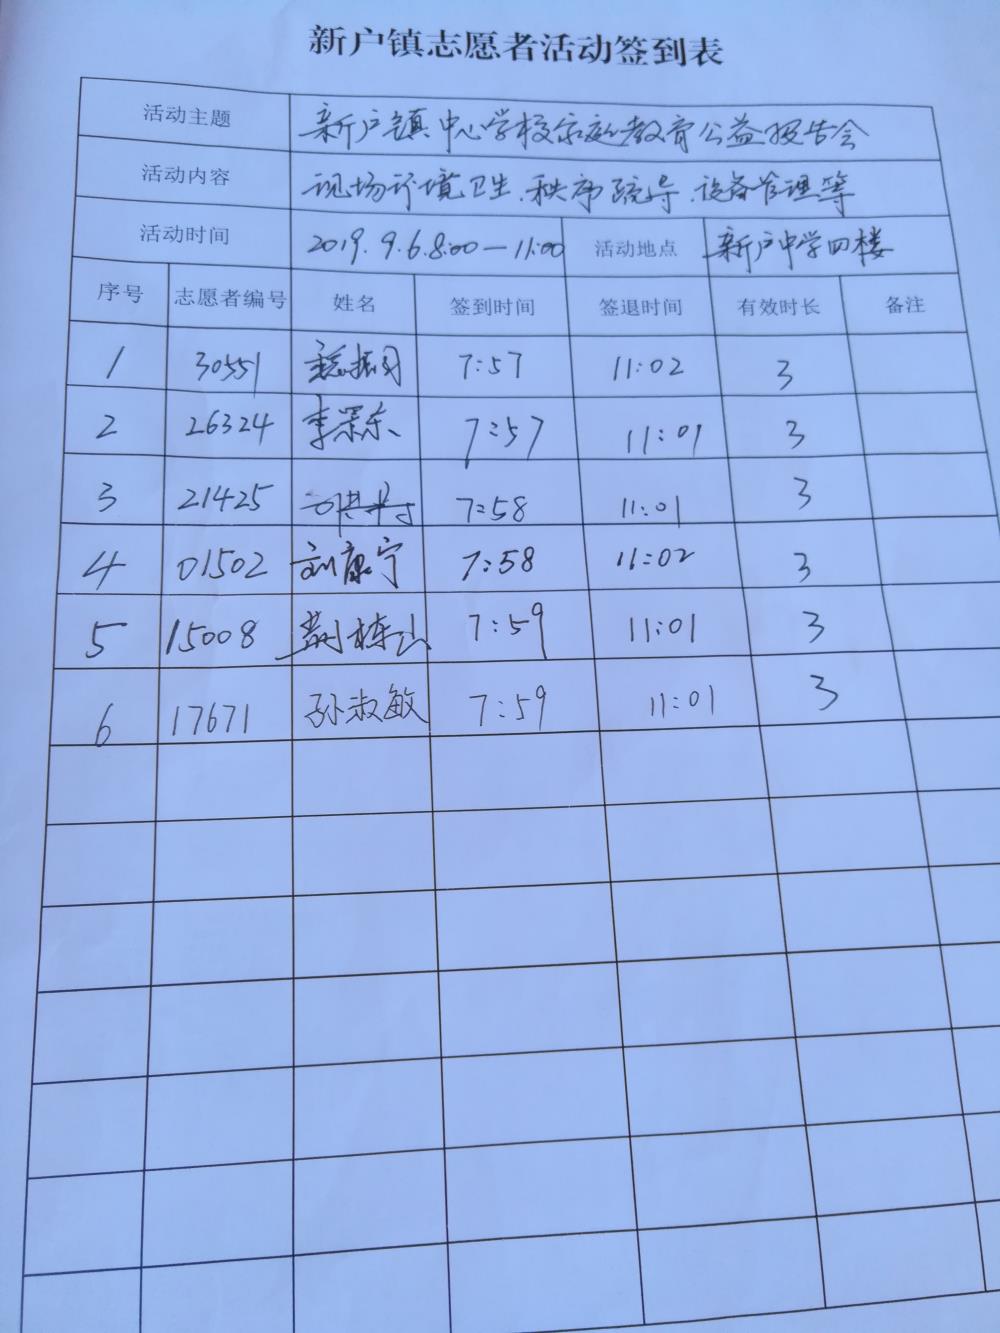 新户镇志愿者活动签到表
活动主题 新户镇中心学校家庭教育公益报告会
活动内容 现场环境卫生、秩序疏导、设备管理等
活动时间 2019.9.6.8:00—11:00 活动地点 新户中学四楼
序号 志愿者编号 姓名 签到时间 签退时间 有效时长 备注
1 30551 7:57 11:02 3
2 26324 7:57 11:01 3
3 21425 7:58 11:01 3
4 01502 刘康宁 7:58 11:02 3
5 15008 7:59 11:01 3
6 17671 孙淑敏 7:59 11:01 3